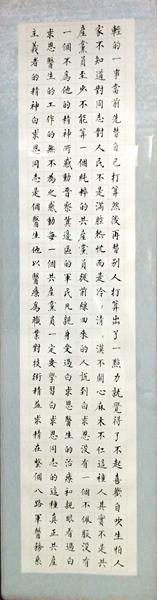 輕的一事當前先替自己打算然後再替別人打算出了一點力就覺得了不起喜歡自吹生怕人
家不知道對同志對人民不是滿腔熱忱而是冷々清々漠不關心麻木不仁這種人其實不是共
產黨員至少不能算一個純粹的共產黨員從前線回來的人說到白求恩沒有一個不佩服沒有
一個不為他的精神所感動晉察冀邊區的軍民凡親身受過白求恩醫生的治療和親眼看過白
求恩醫生的工作的無不為之感動每一個共產黨員一定要學習白求恩同志的這種真正共產
主義者的精神白求恩同志是個醫生他以醫療為職業對技術精益求精在整個八路軍醫務系